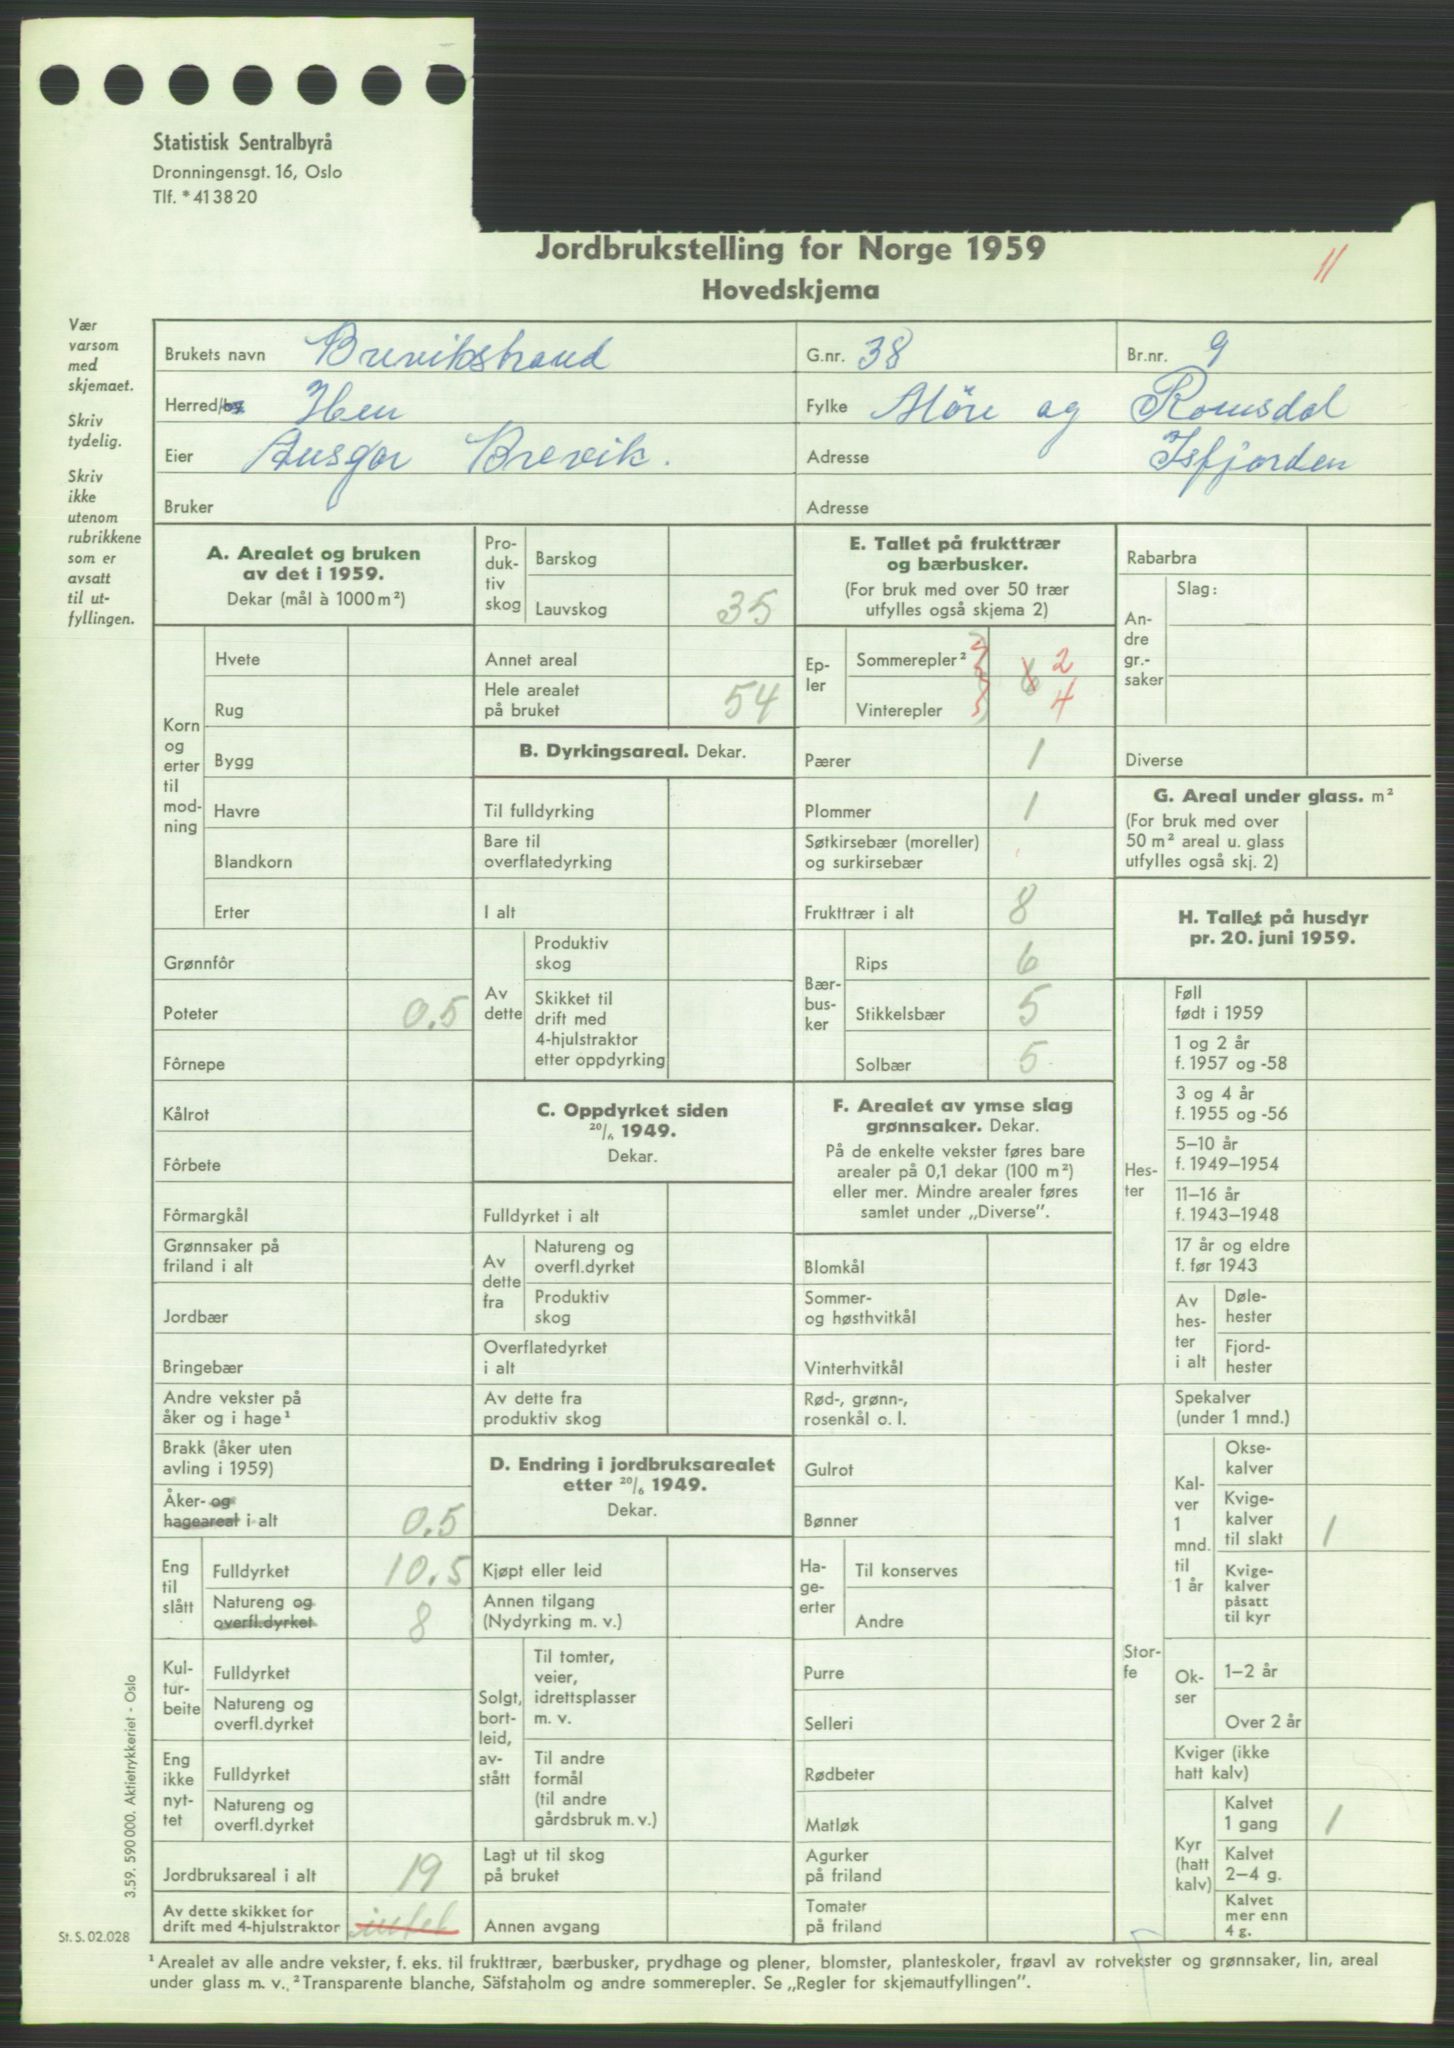 Statistisk Sentralbyrå
Dronningensgt. 16, Oslo
Tlf. * 41 38 20
Jordbrukstelling for Norge 1959
Hovedskjema
11
Vær
varsom
med
skjemaet.
Skriv
tydelig.
Skriv
ikke
utenom
rubrikkene
som er
avsatt
til ut-
fyllingen.
Brukets navn Brevikstrand G.nr. 38 Br.nr. 9
Herred/by Hen Fylke Møre og Romsdal
Eier Ansgar Brevik. Adresse Isfjorden
Bruker Adresse
A. Arealet og bruken
av det i 1959.
Dekar (mål à 1000 m²)
Korn
og
erter
til
mod-
ning
Hvete
Rug
Bygg
Havre
Blandkorn
Erter
Grønnfôr
Poteter 0.5
Fôrnepe
Kålrot
Fôrbete
Fôrmargkål
Grønnsaker på
friland i alt
Jordbær
Bringebær
Andre vekster på
åker og i hage¹
Brakk (åker uten
avling i 1959)
Åker- og
hageareal i alt 0.5
Eng
til
slått
Fulldyrket 10.5
Natureng og
overfl.dyrket 8
Kul-
tur-
beite
Fulldyrket
Natureng og
overfl.dyrket
Eng
ikke
nyt-
tet
Fulldyrket
Natureng og
overfl.dyrket
Jordbruksareal i alt 19
Av dette skikket for
drift med 4-hjulstraktor intet
Pro-
duk-
tiv
skog
Barskog
Lauvskog 35
Annet areal
Hele arealet
på bruket 54
B. Dyrkingsareal. Dekar.
Til fulldyrking
Bare til
overflatedyrking
I alt
Av
dette
Produktiv
skog
Skikket til
drift med
4-hjulstraktor
etter oppdyrking
C. Oppdyrket siden
20/6 1949.
Dekar.
Fulldyrket i alt
Av
dette
fra
Natureng og
overfl.dyrket
Produktiv
skog
Overflatedyrket
i alt
Av dette fra
produktiv skog
D. Endring i jordbruksarealet
etter 20/6 1949.
Dekar.
Kjøpt eller leid
Annen tilgang
(Nydyrking m. v.)
Solgt,
bort-
leid,
av-
stått
Til tomter,
veier,
idrettsplasser
m. v.
Til andre
formål
(til andre
gårdsbruk m. v.)
Lagt ut til skog
på bruket
Annen avgang
E. Tallet på frukttrær
og bærbusker.
(For bruk med over 50 trær
utfylles også skjema 2)
Ep-
ler
Sommerepler² 2
6
Vinterepler 4
Pærer 1
Plommer 1
Søtkirsebær (moreller)
og surkirsebær
Frukttrær i alt 8
Bær-
bus-
ker
Rips 6
Stikkelsbær 5
Solbær 5
F. Arealet av ymse slag
grønnsaker. Dekar.
På de enkelte vekster føres bare
arealer på 0,1 dekar (100 m²)
eller mer. Mindre arealer føres
samlet under „Diverse”.
Blomkål
Sommer-
og høsthvitkål
Vinterhvitkål
Rød-, grønn-,
rosenkål o. l.
Gulrot
Bønner
Ha-
ge-
erter
Til konserves
Andre
Purre
Selleri
Rødbeter
Matløk
Agurker
på friland
Tomater
på friland
Rabarbra
An-
dre
gr.-
saker
Slag:
Diverse
G. Areal under glass. m²
(For bruk med over
50 m² areal u. glass
utfylles også skj. 2)
H. Tallet på husdyr
pr. 20. juni 1959.
Hes-
ter
Føll
født i 1959
1 og 2 år
f. 1957 og -58
3 og 4 år
f. 1955 og -56
5–10 år
f. 1949–1954
11–16 år
f. 1943–1948
17 år og eldre
f. før 1943
Av
hes-
ter
i alt
Døle-
hester
Fjord-
hester
Stor-
fe
Spekalver
(under 1 mnd.)
Kal-
ver
1
mnd.
til
1 år
Okse-
kalver
Kvige-
kalver
til slakt 1
Kvige-
kalver
påsatt
til kyr
Ok-
ser
1–2 år
Over 2 år
Kviger (ikke
hatt kalv)
Kyr
(hatt
kalv)
Kalvet
1 gang 1
Kalvet
2–4 g.
Kalvet
mer enn
4 g.
3.59. 590 000. Aktietrykkeriet - Oslo
St. S. 02.028
¹ Arealet av alle andre vekster, f. eks. til frukttrær, bærbusker, prydhage og plener, blomster, planteskoler, frøavl av rotvekster og grønnsaker, lin, areal
under glass m. v. ² Transparente blanche, Säfstaholm og andre sommerepler. Se „Regler for skjemautfyllingen”.